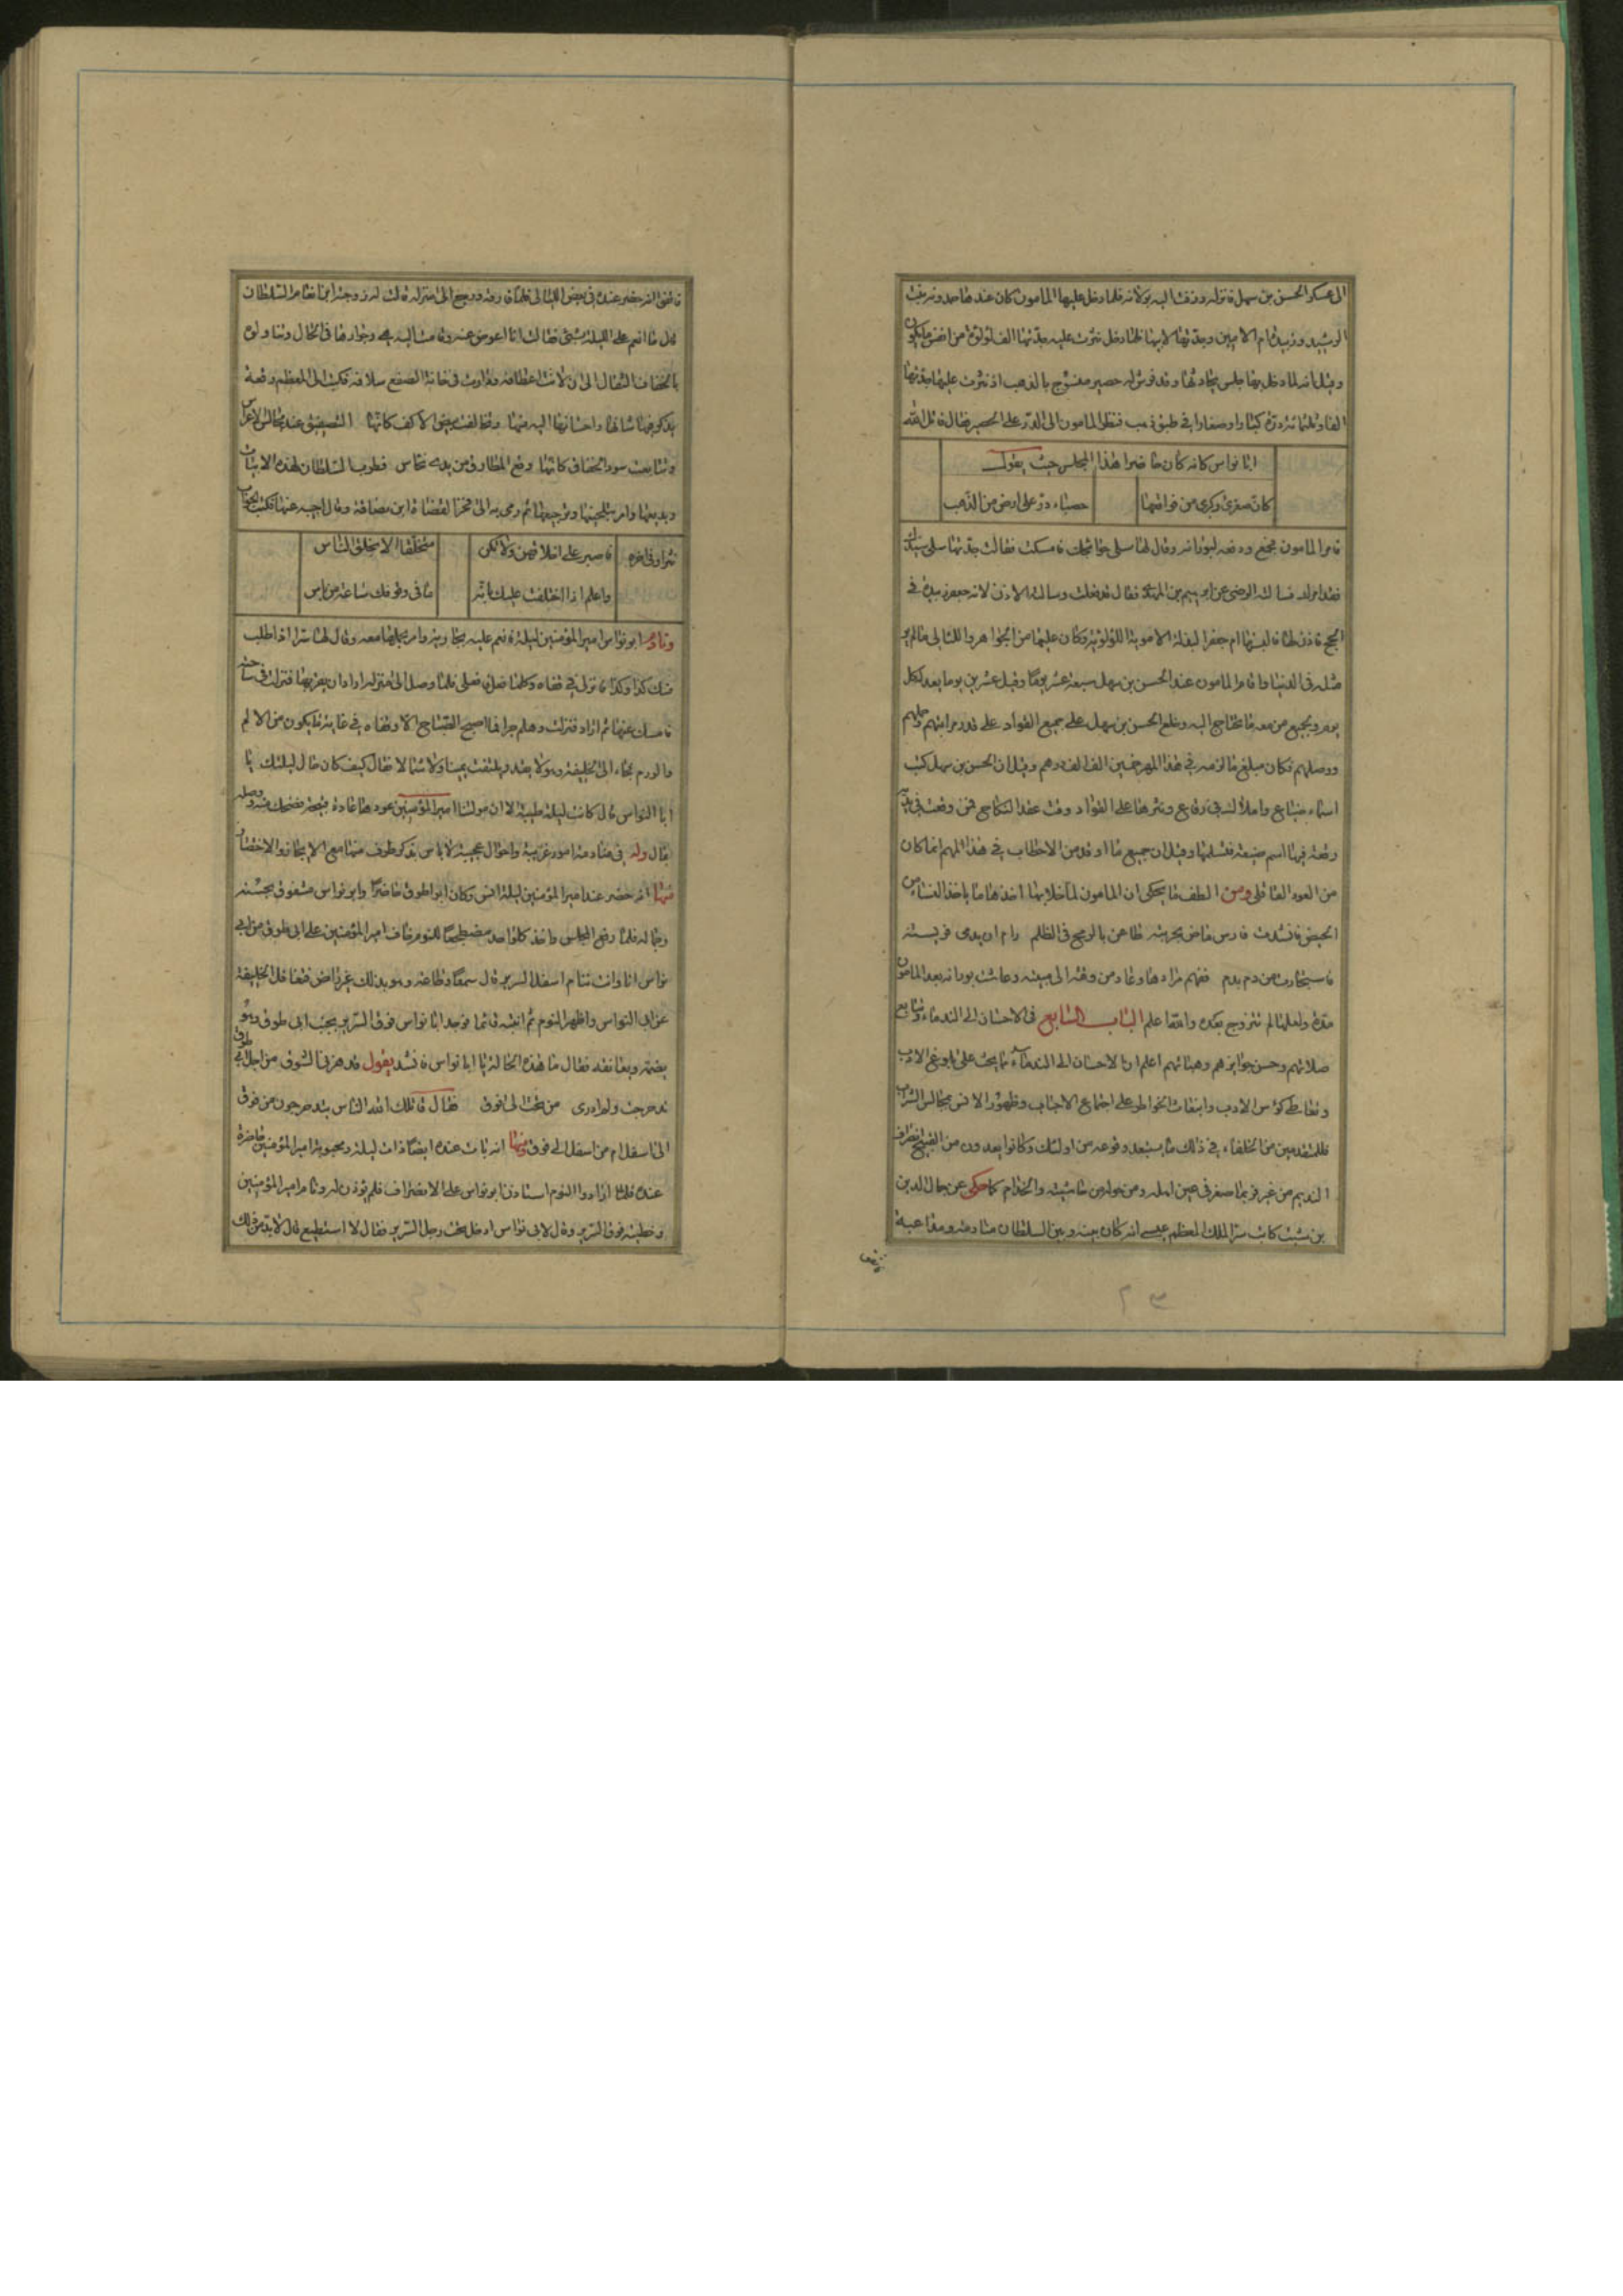 الى عسكر الحسن بن سهل فانزله وزفت اليه بوران فلما دخل عليها المامون كان عندها حمدونه بنت
الرشيد وزبيدة ام الامين وجدتها لابيها فلما دخل نثرت عليه جدتها الف لؤلؤة من انفس مايكون
وقيل انه لما دخل بها جلس يحادثها وقد فرش له حصير منسوج بالذهب اذ نثرت عليها جدتها
الفا وثلثمائة درة كبارا وصغارا في طبق ذهب فنظر المامون الى الدر على الحصير فقال قاتل الله
ابا نواس كانه كان حاضرا هذا المجلس حيث يقول
كان صغرى وكبرى من فواقعها
حصباء در على ارض من الذهب
فامر المامون فجمع ودفعه لبوران وقال لها سلى حوائجك فامسكت فقالت جدتها سلى سيدك
فقد امرك فسالته الرضى عن ابرهيم بن المهدى فقال قد فعلت وسالته الاذن لام جعفر زبيدة في
الحج فاذن لها فالبستها ام جعفر البدلة الاموية اللؤلؤية وكان عليها من الجواهر واللئالى مالم ير
مثله في الدنيا واقام المامون عند الحسن بن سهل سبعة عشر يوما وقيل عشرين يوما يعد لكل
يوم ولجميع من معه ما يحتاج اليه وخلع الحسن بن سهل على جميع القواد على قدر مراتبهم وحملهم
ووصلهم فكان مبلغ ما لزمه في هذا المهر خمسين الف الف درهم وقيل ان الحسن بن سهل كتب
اسماء ضياع واملاك في رقاع ونثرها على القواد وقت عقد النكاح فمن وقعت في يده
رقعة فيها اسم ضيعة فتسلمها وقيل ان جميع ما اوقد من الاحطاب في هذا المهم انما كان
من العود القاقلى ومن الطف ما يحكى ان المامون لما خلا بها اخذها ما ياخذ النساء من
الحيض فانشدت فارس ماض بحربته طاعن بالرمح في الظلم رام ان يدمى فريسته
فاستجارت من دم بدم ففهم مرادها وعاد من وقته الى مبيته وعاشت بوران بعد المامون
مدة ولعلها لم تتزوج بعده والله اعلم الباب السابع في الاحسان الى الندماء
صلاتهم وحسن جوائزهم وهباتهم اعلم ان الاحسان الى الندماء مما يحث على بلوغ الادب
وتعاطى كؤس الادب وانبعاث الخواطر على اجتماع الاحباب وظهور الانس بمجالس الشراب
فللمتقدمين من الخلفاء في ذلك ما يستبعد وقوعه من اولئك وكانوا يعدون من القبيح انصراف
النديم من غير فرع ما صغر في عين اهله ومن حوله من حاشيته والخدام كما حكى عن جمال الدين
بن شيث كاتب سر الملك المعظم عيسى انه كان بينه وبين السلطان منادمة ومداعبة
فاتفق انه حضر عنده في بعض الليالى فلما فارقه ورجع الى منزله قالت له زوجته ابنا نعام السلطان
قال ما انعم على الليلة بشئ فقالت انا اعوض عنه وقامت اليه هى وجوارها في الحال وتناولوه
بالخفاف الثقال الى ان لانت اعطافه ودارت في حانة الصفع سلافه فكتب الى المعظم رقعة
يذكر فيها شانها واحسانها اليه منها وتخالفت بيض الاكف كانها التصفيق عند مجالس الاعراس
وتتابعت سود الخفاف كانها وقع المطارق من يد نحاس فطرب السلطان لهذه الابيات
وبديعها وامر بتلحينها وترجيعها ثم رمى به الى فخر القضاة ابن بصاقة وقال اجبه عنها فكتب الجواب
نثرا وفي اخره
فاصبر على اخلاقهن ولا تكن
متخلقا الا بخلق الناس
واعلم اذا اختلفت عليك بانه
ما في وقوفك ساعة من باس
ونادم ابو نواس امير المؤمنين ليلة فانعم عليه بجارية وامر بحملها معه وقال لها سرا اذا طلب
منك كذا وكذا فانزلى في قفاه وكلما فعل فافعلى فلما وصل الى منزله اراد ان يقربها فنزلت في ساحته
فامسك عنها ثم اراد فنزلت وهلم جرا فما اصبح الصباح الا وقفاه في غاية ما يكون من الالم
والورم فجاء الى الخليفة وهو لا يقدر يلتفت يمينا ولا شمالا فقال كيف كان حال ليلتك يا
ابا النواس قال كانت ليلة طيبة الا ان مولتنا امير المؤمنين عودها عادة قبيحة فضحك منه ووصله
بمال وله في منادمته امور غريبة واحوال عجيبة لا باس بذكر طرف منها مع الايجاز والاختصار
فمنها انه حضر عند امير المؤمنين ليلة انس وكان ابو اطوق حاضرا وابو نواس مشغوف بحسنه
وجماله فلما رفع المجلس واخذ كل واحد مضجعا للنوم خاف امير المؤمنين على ابي طوق من ابي
نواس انا وانت ننام اسفل السرير قال سمعا وطاعة وهو بذلك غير راض فتغافل الخليفة
عن ابي النواس واظهر النوم ثم انتبه قائما فوجد ابا نواس فوق السرير بجنب ابي طوق وهو
يضمه ويعانقه فقال ما هذه الحالة يا ابا نواس فانشد يقول قد هزني الشوق من اجل ابي طوق
تدحرجت ولم ادرى من تحت الى فوق فقال قاتلك الله الناس يتدحرجون من فوق
الى اسفل ام من اسفل الى فوق ومنها انه بات عنده ايضا ذات ليلة ومحبوبة امير المؤمنين حاضرة
عنده فلما ارادوا النوم استاذن ابو نواس على الانصراف فلم يؤذن له ونام امير المؤمنين
وحظيته فوق السرير وقال لابي نواس ادخل تحت رجل السرير فقال لا استطيع قال لا بد من ذلك